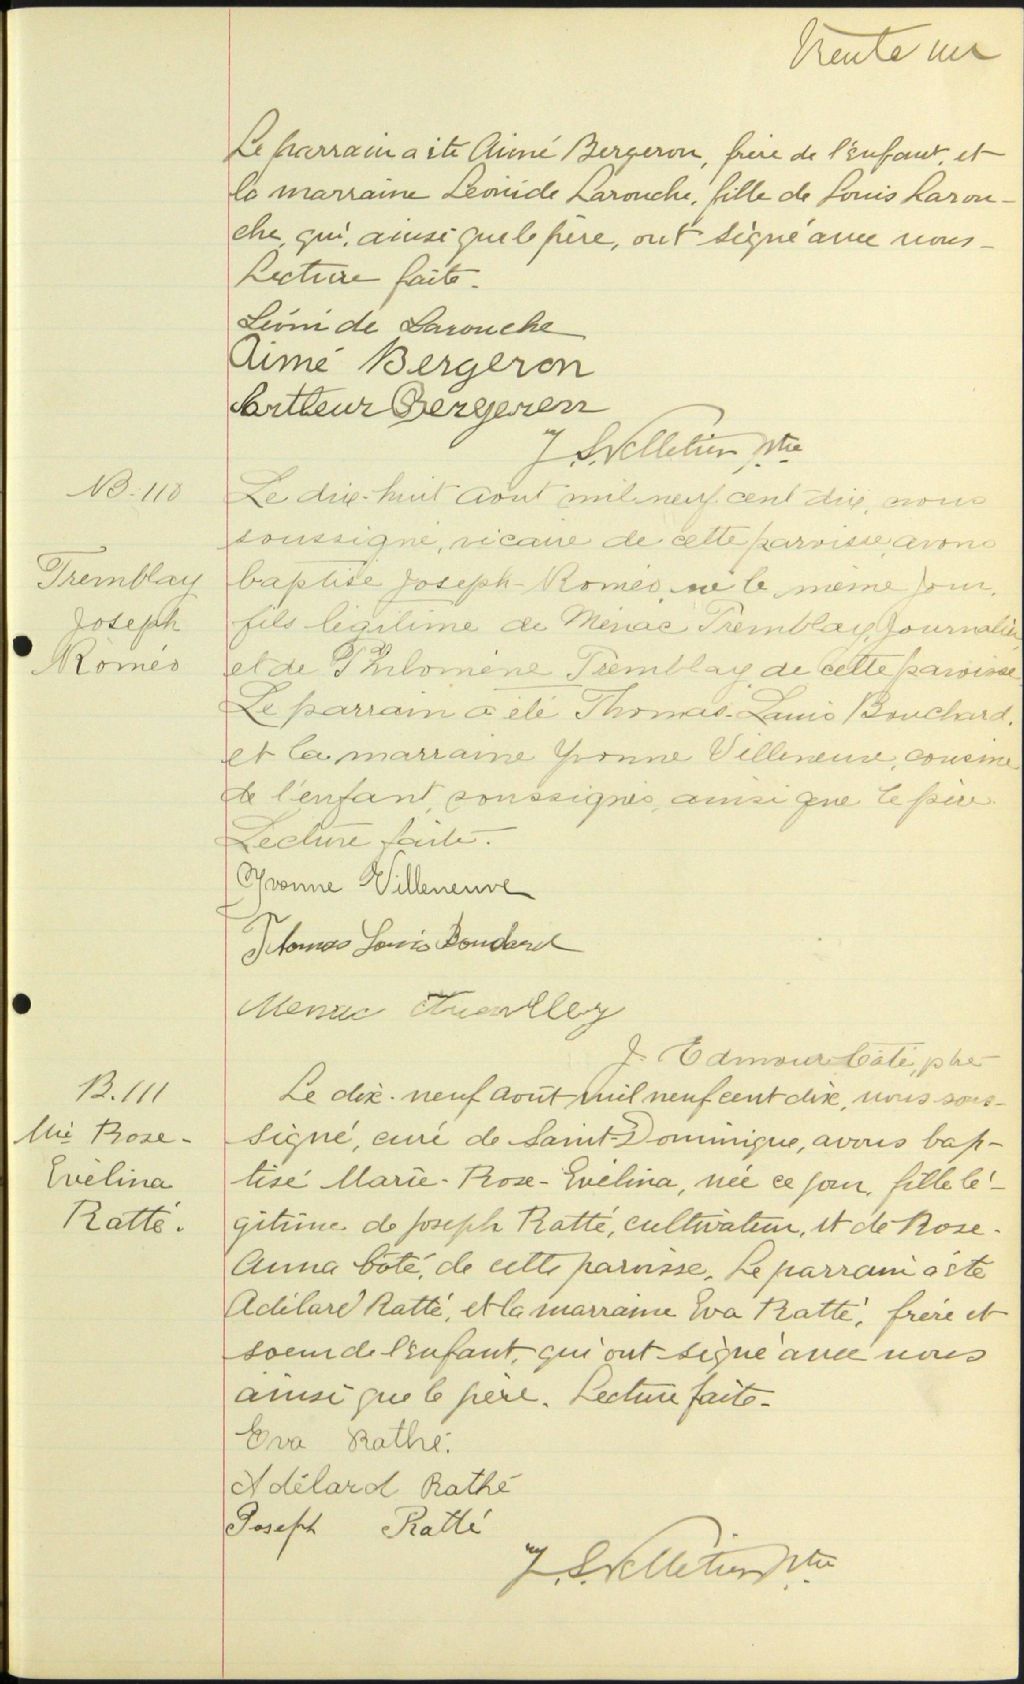 Trente un
Le parrain a été Aimé Bergeron, frère de l'enfant, et
la marraine Léonide Larouche, fille de Louis Larou-
che, qui, ainsi que le père, ont signé avec nous-
Lecture faite.
Léonide Larouche
Aimé Bergeron
Arthur Bergeron
J. S. Pelletier Ptre
B. 110
Le dix-huit août mil neuf cent dix, nous
soussigné, vicaire de cette paroisse, avons
Tremblay
baptisé Joseph-Roméo, né le même jour,
Joseph
fils légitime de Ménac Tremblay, Journalier
Roméo
et de Philomène Tremblay de cette paroisse.
Le parrain a été Thomas-Louis Bouchard,
et la marraine Yvonne Villeneuve, cousine
de l'enfant, soussignés, ainsi que le père.
Lecture faite.
Yvonne Villeneuve
Thomas Louis Bouchard
Menac Tremblay
J. Edmour Côté, ptre
B. 111
Le dix-neuf août mil neuf cent dix, nous sous-
Mie Rose-
signé, curé de Saint-Dominique, avons bap-
Evélina
tisé Marie-Rose-Evélina, née ce jour, fille lé-
Ratté.
gitime de Joseph Ratté, cultivateur, et de Rose-
Anna Côté, de cette paroisse. Le parrain a été
Adélard Ratté, et la marraine Eva Ratté, frère et
soeur de l'enfant, qui ont signé avec nous
ainsi que le père. Lecture faite-
Eva Rathé.
Adélard Rathé
Joseph Ratté
J. S. Pelletier Ptre